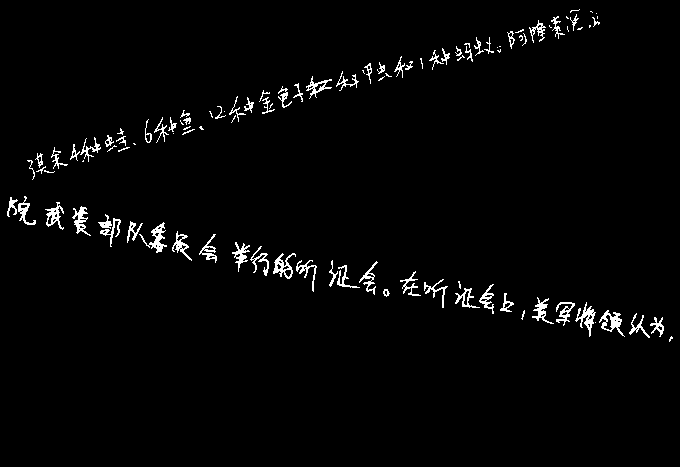 其余4种蛙、6种鱼、12种金龟子和甲虫和1种蚂蚁。阿隆索说
院武装部队委员会举行的听证会。在听证会上,美军将领认为,